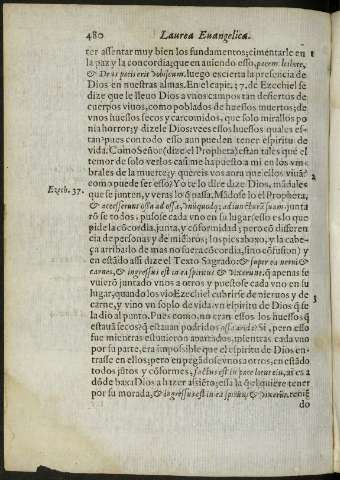 480 Laurea Euangelica.
ter assentar muy bien los fundamentos; cimentarle en 1
la paz y la concordia; que en auiendo esso, pacem habete,
& Deus pacis erit vobiscum. luego es cierta la presencia de
Dios en nuestras almas. En el capit. 37. de Ezechiel se
dize que le lleuo Dios a vnos campos tan desiertos de
cuerpos viuos, como poblados de huessos muertos; de
vnos huessos secos y carcomidos, que solo mirallos po
nia horror; y dizele Dios: vees essos huessos quales es-
tan? pues con todo esso aun pueden tener espiritu de
vida. Como Señor (dize el Propheta) estan tales que el
temor de solo verlos casi me ha puesto a mi en los vm-
brales de la muerte; y quereis vos aora que ellos viuã? 2
Ezech. 37. como puede ser esso? Yo te lo dire dize Dios, mãdales
que se junten, y veras lo q̃ passa. Mãdose lo el Propheta,
& accesserunt ossa ad ossa, vnũquodq; ad iuncturã suam. junta
rõ se todos, pusose cada vno en su lugar (esso es lo que
pide la cõcordia, junta, y cõformidad; pero cõ differen
cia de personas y de miẽbros; los pies abaxo, y la cabe-
ça arriba: lo de mas no fuera cõcordia, sino cõfusion) y
en estãdo assi dize el Texto Sagrado: & super ea nerui &
carnes, & ingressus est in ea spiritus & vixerunt. q̃ apenas se
vuierõ juntado vnos a otros y puestose cada vno en su
lugar, quando los vio Ezechiel cubrirse de nieruos y de 3
carne, y vino vn soplo de vida: vn espiritu de Dios q̃ se
la dio al punto. Pues como, no eran essos los huessos q̃
estauã secos? q̃ estauan podridos ossa arida? Si, pero esso
fue mientras estuuieron apartados, mientras cada vno
por su parte, era impossible que el espiritu de Dios en-
trasse en ellos; pero en pegãdose vnos a otros, en estãdo
todos jũtos y cõformes, factus est in pace locus eiu, ai es a
dõde baxa Dios a hazer assiẽto; essa la q̃ el quiere tener
por su morada, & ingressus est in ea spiritus, & vixerũt. teniẽ
do